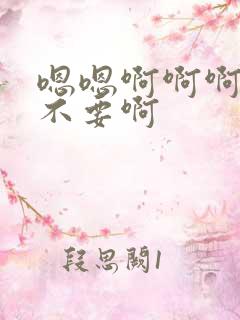 嗯嗯啊啊啊
不要啊
段思阙1